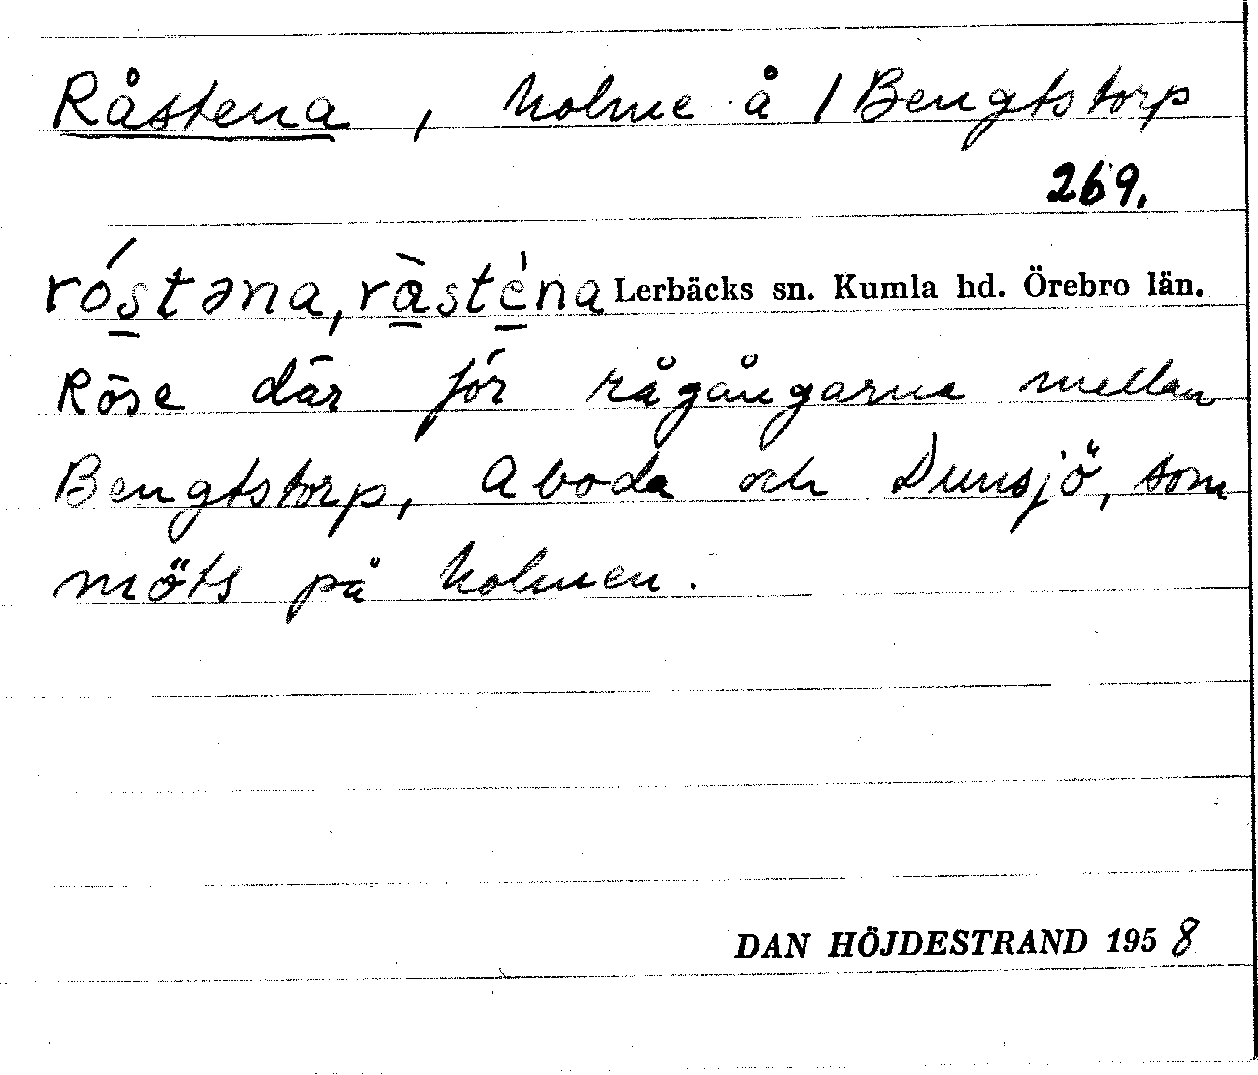 Råstena, holme å / Bengtstorp
269.
róstəna, ràsténa Lerbäcks sn. Kumla hd. Örebro län.
Röse där för rågångarna mellan
Bengtstorp, Aboda och Dunsjö, som
möts på holmen.
DAN HÖJDESTRAND 1958